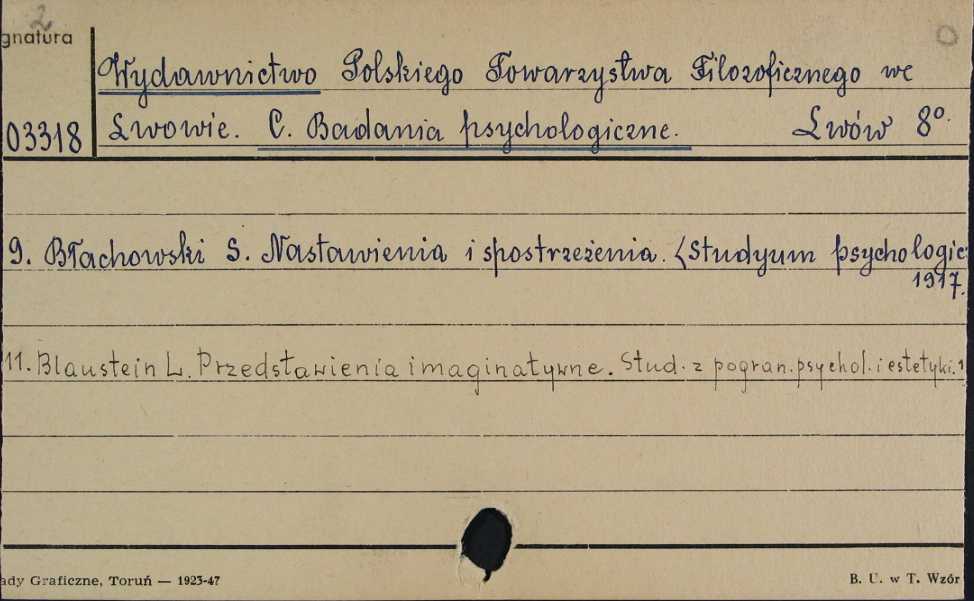 2
gnatura
Wydawnictwo Polskiego Towarzystwa Filozoficznego we
03318 Lwowie. C. Badania psychologiczne. Lwów 8°.
9. Błachowski S. Nastawienia i spostrzeżenia. (Studyum psychologic
1917.
11. Blaustein L. Przedstawienia imaginatywne. Stud. z pogran. psychol. i estetyki. 1
ady Graficzne, Toruń — 1923-47
B. U. w T. Wzór